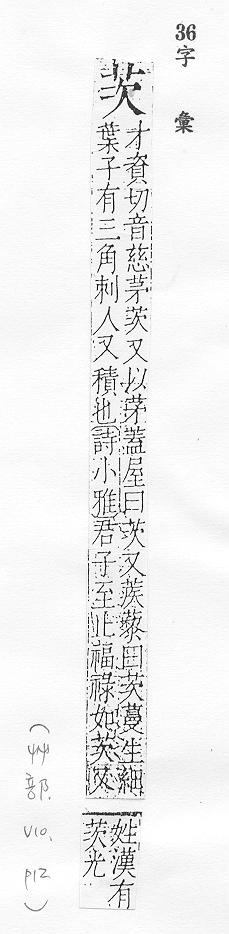 36 字彙
茨
才資切音慈茅茨又以茅蓋屋曰茨又蒺藜曰茨蔓生細
葉子有三角刺人又積也詩小雅君子至止福祿如茨又
姓漢有
茨光
(艸部. V10, P12)